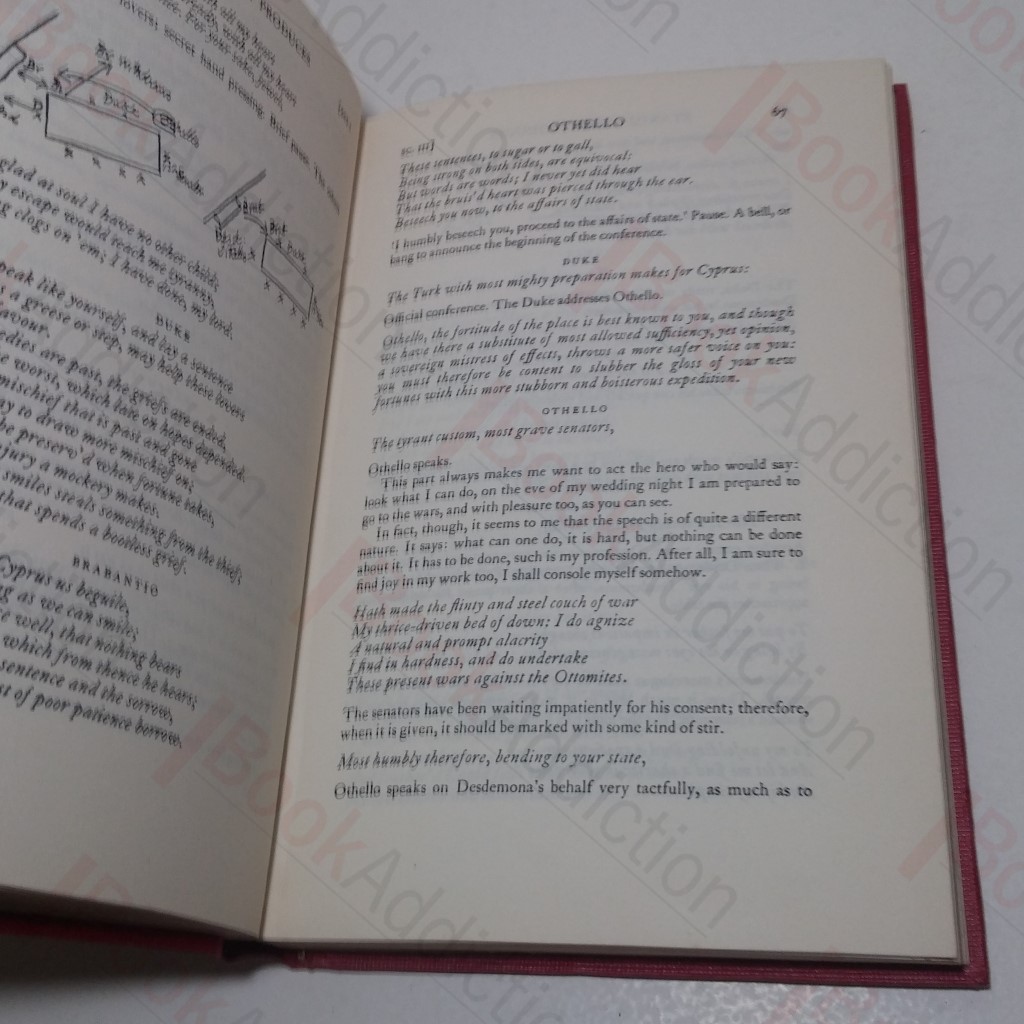 PRODUCES
lovers; secret hand pressing. Brief pause. The
Duke
glad at soul I have no other child;
y escape would teach me tyranny,
ng clogs on 'em; I have done, my lord.
DUKE
peak like yourself, and lay a sentence
s a greese or step, may help these lovers
avour.
edies are past, the griefs are ended,
e worst, which late on hopes depended.
mischief that is past and gone
ay to draw more mischief on;
be preserv'd when fortune takes,
jury a mockery makes.
smiles steals something from the thief;
that spends a bootless grief.
BRABANTIO
Cyprus us beguile,
ng as we can smile;
ce well, that nothing bears
which from thence he hears;
sentence and the sorrow,
st of poor patience borrow.
OTHELLO 67
sc. iii]
These sentences, to sugar or to gall,
Being strong on both sides, are equivocal:
But words are words; I never yet did hear
That the bruis'd heart was pierced through the ear.
Beseech you now, to the affairs of state.
'I humbly beseech you, proceed to the affairs of state.' Pause. A bell, or
bang to announce the beginning of the conference.
DUKE
The Turk with most mighty preparation makes for Cyprus:
Official conference. The Duke addresses Othello.
Othello, the fortitude of the place is best known to you, and though
we have there a substitute of most allowed sufficiency, yet opinion,
a sovereign mistress of effects, throws a more safer voice on you:
you must therefore be content to slubber the gloss of your new
fortunes with this more stubborn and boisterous expedition.
OTHELLO
The tyrant custom, most grave senators,
Othello speaks.
This part always makes me want to act the hero who would say:
look what I can do, on the eve of my wedding night I am prepared to
go to the wars, and with pleasure too, as you can see.
In fact, though, it seems to me that the speech is of quite a different
nature. It says: what can one do, it is hard, but nothing can be done
about it. It has to be done, such is my profession. After all, I am sure to
find joy in my work too, I shall console myself somehow.
Hath made the flinty and steel couch of war
My thrice-driven bed of down: I do agnize
A natural and prompt alacrity
I find in hardness, and do undertake
These present wars against the Ottomites.
The senators have been waiting impatiently for his consent; therefore,
when it is given, it should be marked with some kind of stir.
Most humbly therefore, bending to your state,
Othello speaks on Desdemona's behalf very tactfully, as much as to
BookAddiction